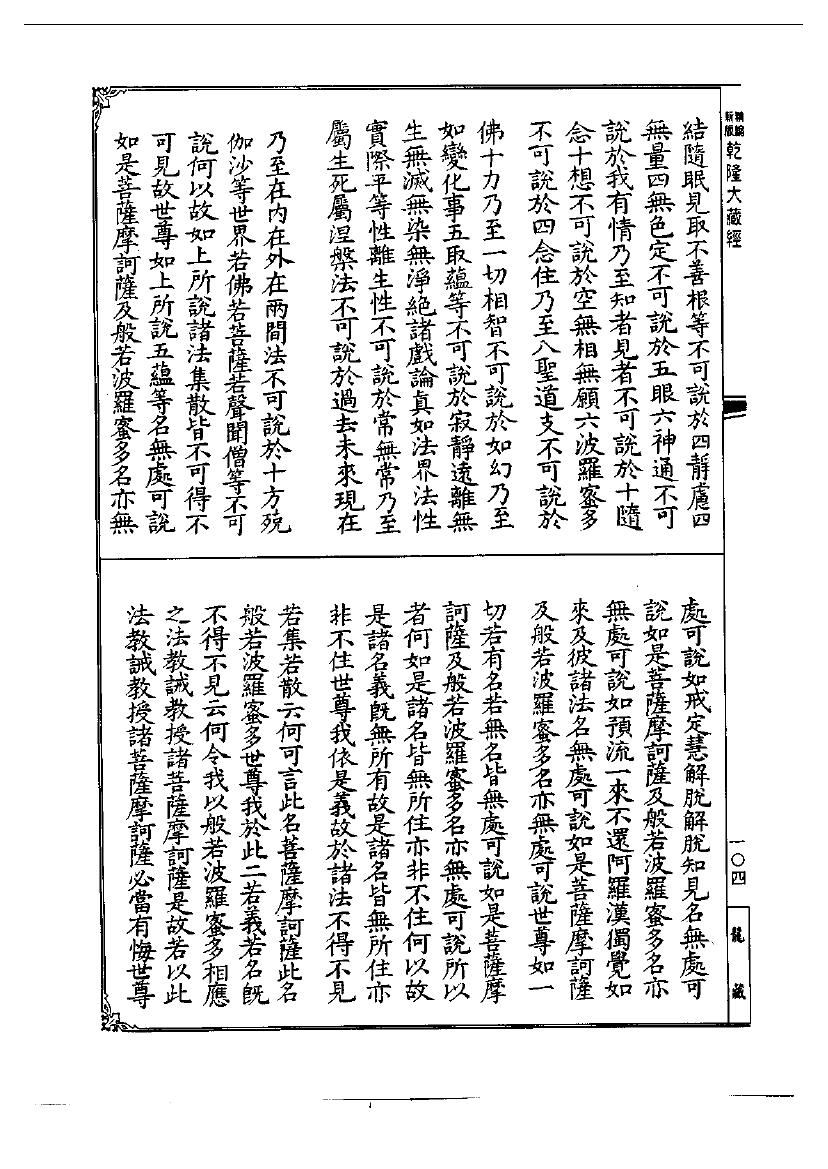 精編
新版
乾隆大藏經
結隨眠見取不善根等不可說於四靜慮四
無量四無色定不可說於五眼六神通不可
說於我有情乃至知者見者不可說於十隨
念十想不可說於空無相無願六波羅蜜多
不可說於四念住乃至八聖道支不可說於
佛十力乃至一切相智不可說於如幻乃至
如變化事五取蘊等不可說於寂靜遠離無
生無滅無染無淨絕諸戲論真如法界法性
實際平等性離生性不可說於常無常乃至
屬生死屬涅槃法不可說於過去未來現在
乃至在內在外在兩間法不可說於十方殑
伽沙等世界若佛若菩薩若聲聞僧等不可
說何以故如上所說諸法集散皆不可得不
可見故世尊如上所說五蘊等名無處可說
如是菩薩摩訶薩及般若波羅蜜多名亦無
處可說如戒定慧解脫解脫知見名無處可
說如是菩薩摩訶薩及般若波羅蜜多名亦
無處可說如預流一來不還阿羅漢獨覺如
來及彼諸法名無處可說如是菩薩摩訶薩
及般若波羅蜜多名亦無處可說世尊如一
切若有名若無名皆無處可說如是菩薩摩
訶薩及般若波羅蜜多名亦無處可說所以
者何如是諸名皆無所住亦非不住何以故
是諸名義既無所有故是諸名皆無所住亦
非不住世尊我依是義故於諸法不得不見
若集若散云何可言此名菩薩摩訶薩此名
般若波羅蜜多世尊我於此二若義若名既
不得不見云何令我以般若波羅蜜多相應
之法教誡教授諸菩薩摩訶薩是故若以此
法教誡教授諸菩薩摩訶薩必當有悔世尊
一〇四
龍藏